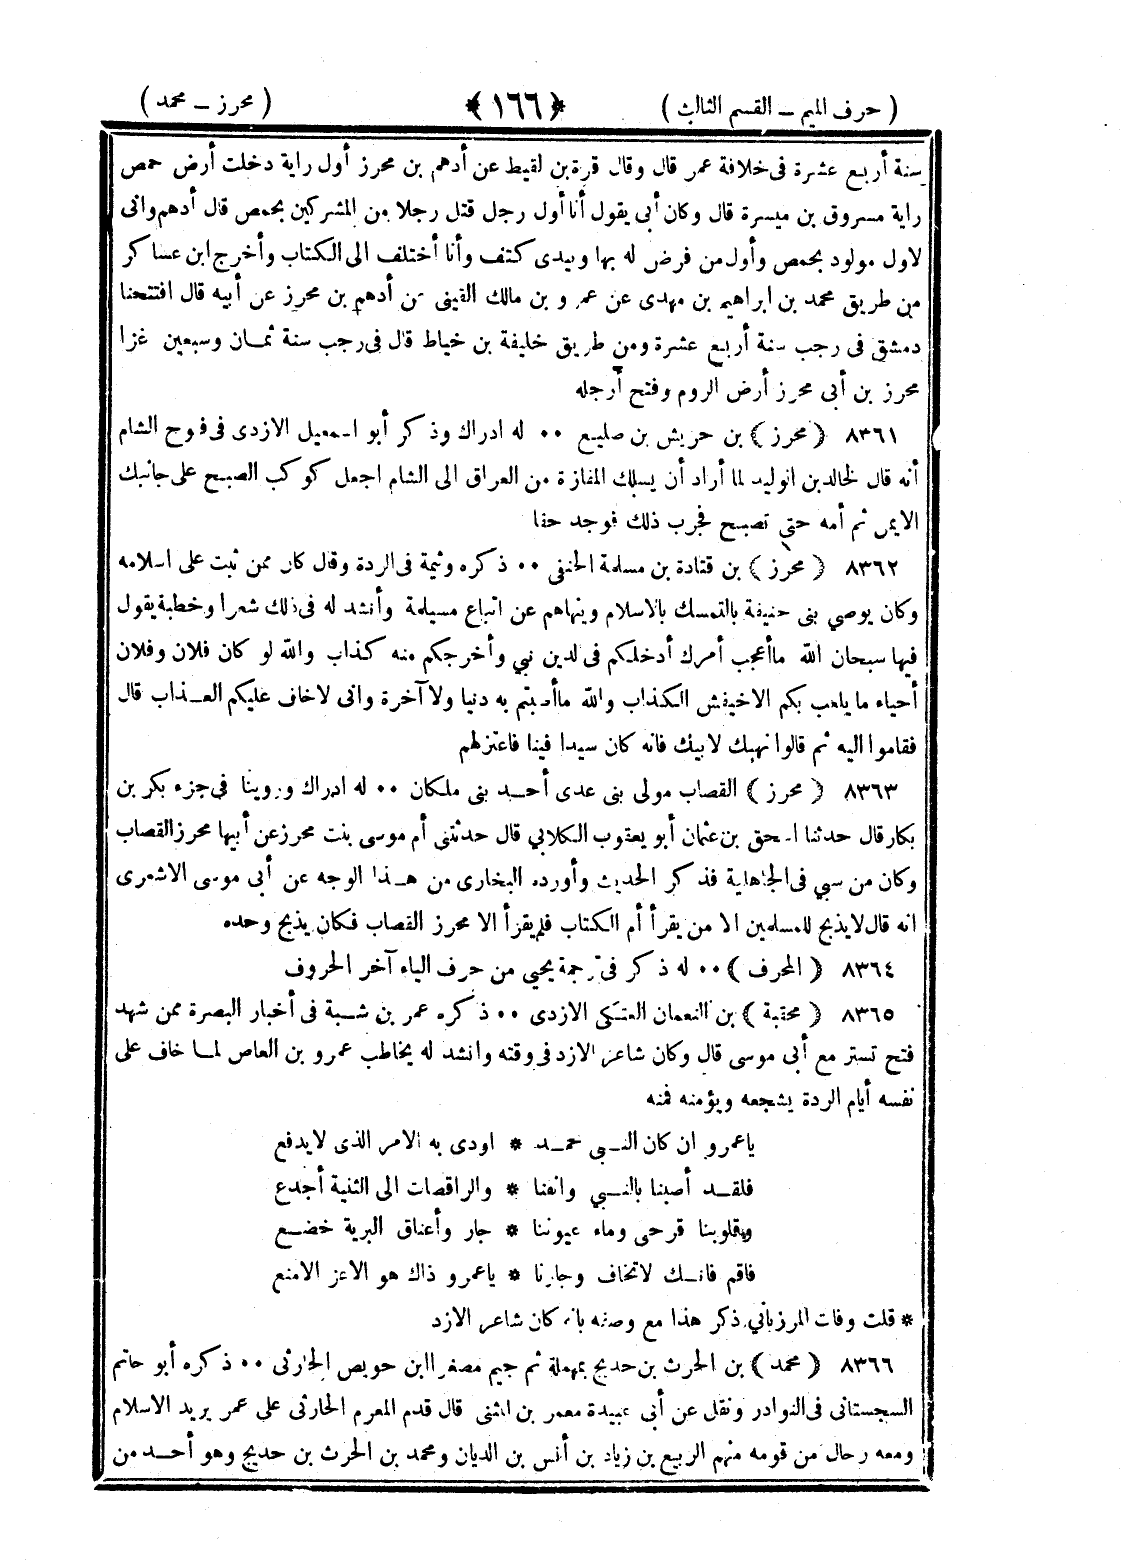 ( حرف الميم – القسم الثالث ) ﴿ ١٦٦ ﴾ ( محرز – محمد )
سنة أربع عشرة فى خلافة عمر قال وقال قرة بن لقيط عن أدهم بن محرز أول راية دخلت أرض حمص
راية مسروق بن ميسرة قال وكان أبى يقول أنا أول رجل قتل رجلا من المشركين بحمص قال أدهم وانى
لاول مولود بحمص وأول من فرض له بها وبيدى كتف وأنا أختلف الى الكتاب وأخرج ابن عساكر
من طريق محمد بن ابراهيم بن مهدى عن عمرو بن مالك القينى عن أدهم بن محرز عن أبيه قال افتتحنا
دمشق فى رجب سنة أربع عشرة ومن طريق خليفة بن خياط قال فى رجب سنة ثمان وسبعين غزا
محرز بن أبى محرز أرض الروم وفتح أرجله
٨٣٦١ ( محرز ) بن حريش بن صليع ٠٠ له ادراك وذكر أبو اسمعيل الازدى فى فوح الشام
أنه قال لخالد بن الوليد لما أراد أن يسلك المفازة من العراق الى الشام اجعل كوكب الصبح على جانبك
الايمن ثم أمه حتى تصبح فجرب ذلك فوجد حقا
٨٣٦٢ ( محرز ) بن قتادة بن مسلمة الحنفى ٠٠ ذكره وثيمة فى الردة وقال كان ممن ثبت على اسلامه
وكان يوصي بنى حنيفة بالتمسك بالاسلام وينهاهم عن اتباع مسيلمة وأنشد له فى ذلك شعرا وخطبة يقول
فيها سبحان الله ما أعجب أمرك أدخلكم فى لدين نبي وأخرجكم منه كذاب والله لو كان فلان وفلان
أحياء ما يلعب بكم الاخيفش الكذاب والله ما أصبتم به دنيا ولا آخرة وانى لاخاف عليكم العذاب قال
فقاموا اليه ثم قالوا نهبك لابيك فانه كان سيدا فينا فاعتزلهم
٨٣٦٣ ( محرز ) القصاب مولى بنى عدى أحد بنى ملكان ٠٠ له ادراك وروينا فى جزء بكر بن
بكار قال حدثنا اسحق بن عثمان أبو يعقوب الكلابي قال حدثتنى أم موسى بنت محرز عن أبيها محرز القصاب
وكان من سبي فى الجاهاية فذكر الحديث وأورده البخارى من هذا الوجه عن أبى موسى الاشعرى
انه قال لا يذبح للمسلمين الا من يقرأ أم الكتاب فلم يقرأ الا محرز القصاب فكان يذبح وحده
٨٣٦٤ ( المحرف ) ٠٠ له ذكر فى ترجمة يحيى من حرف الياء آخر الحروف
٨٣٦٥ ( محقبة ) بن النعمان العتكى الازدى ٠٠ ذكره عمر بن شبة فى أخبار البصرة ممن شهد
فتح تستر مع أبى موسى قال وكان شاعر الازد فى وقته وانشد له يخاطب عمرو بن العاص لما خاف على
نفسه أيام الردة يشجعه ويؤمنه فمنه
ياعمرو ان كان النبى محمد * اودى به الامر الذى لا يدفع
فلقد أصبنا بالنبي وانفنا * والراقصات الى الثنية أجدع
وقلوبنا قرحى وماء عيوننا * جار وأعناق البرية خضع
فاقم فانك لاتخاف وجارنا * ياعمرو ذاك هو الاعز الامنع
* قلت وفات المرزبانى ذكر هذا مع وصفه بانه كان شاعر الازد
٨٣٦٦ ( محمد ) بن الحرث بن حديج بمهملة ثم جيم مصغرا ابن حويص الحارثى ٠٠ ذكره أبو حاتم
السجستانى فى النوادر ونقل عن أبى عبيدة معمر بن المثنى قال قدم المعرم الحارثى على عمر يريد الاسلام
ومعه رجال من قومه منهم الربيع بن زياد بن أنس بن الديان ومحمد بن الحرث بن حديج وهو أحد من